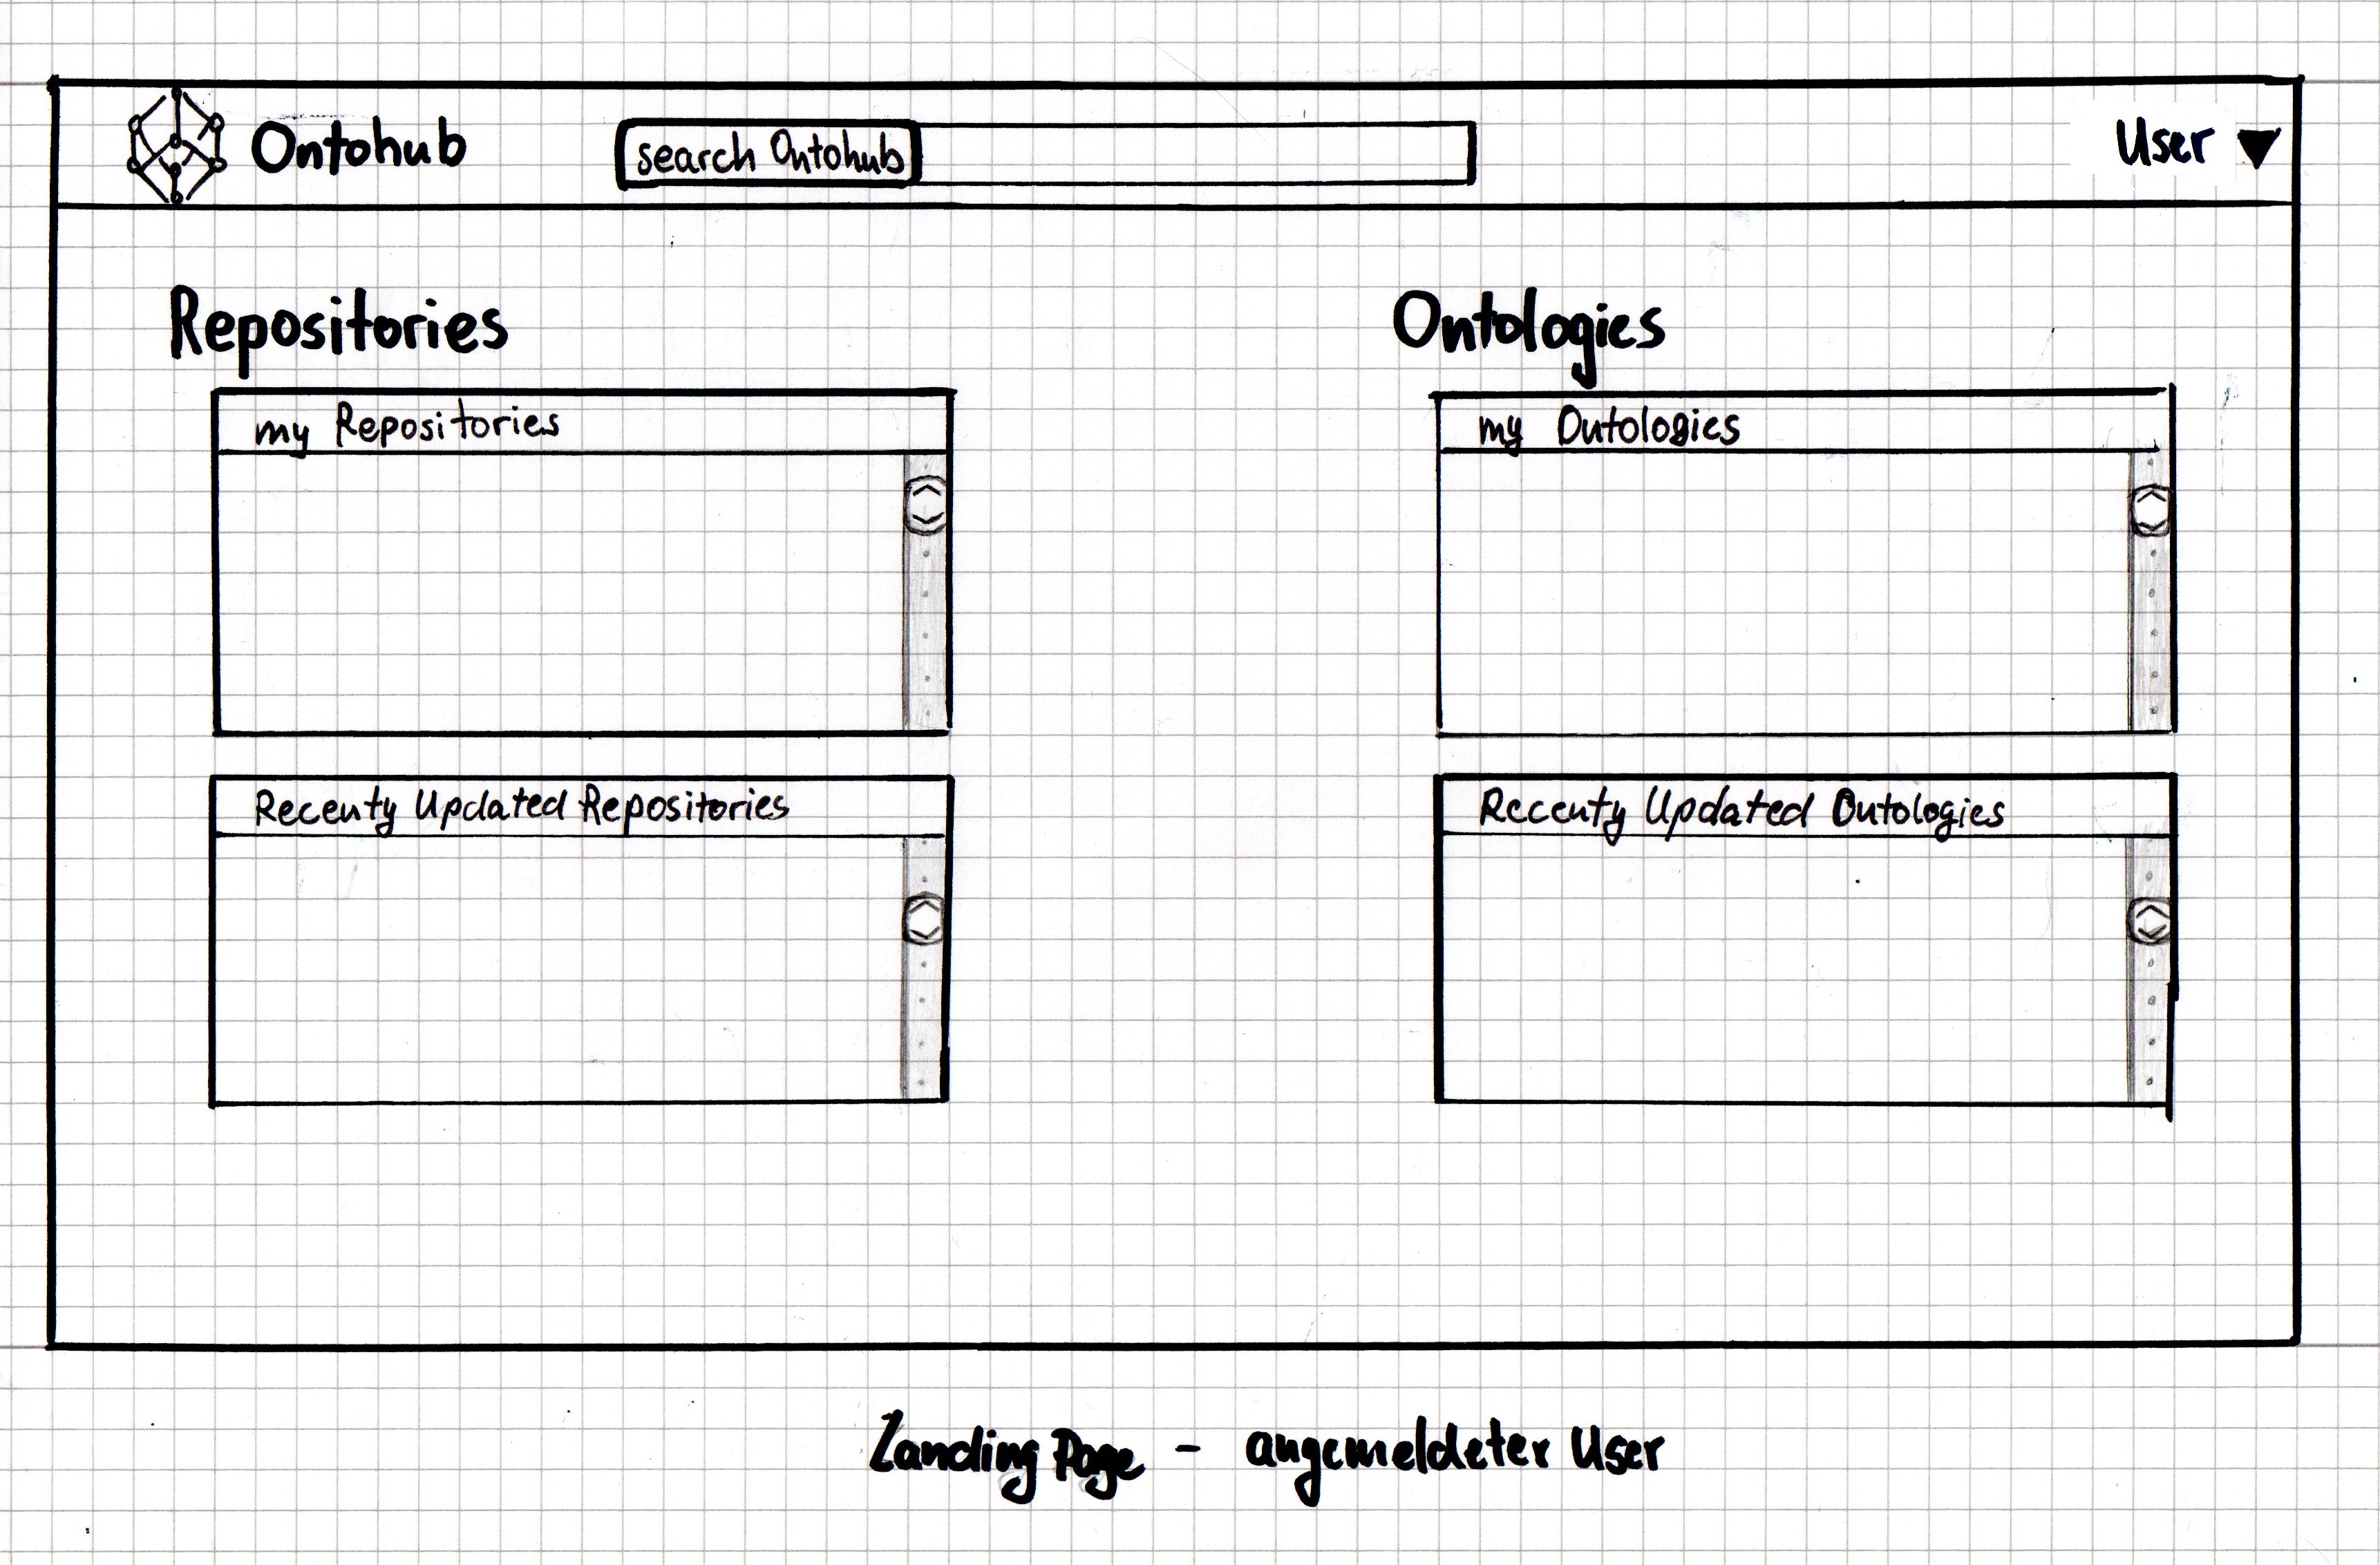 Ontohub
search Ontohub
User
Repositories
my Repositories
Recenty Updated Repositories
Ontologies
my Ontologies
Recenty Updated Ontologies
Landing Page - angemeldeter User